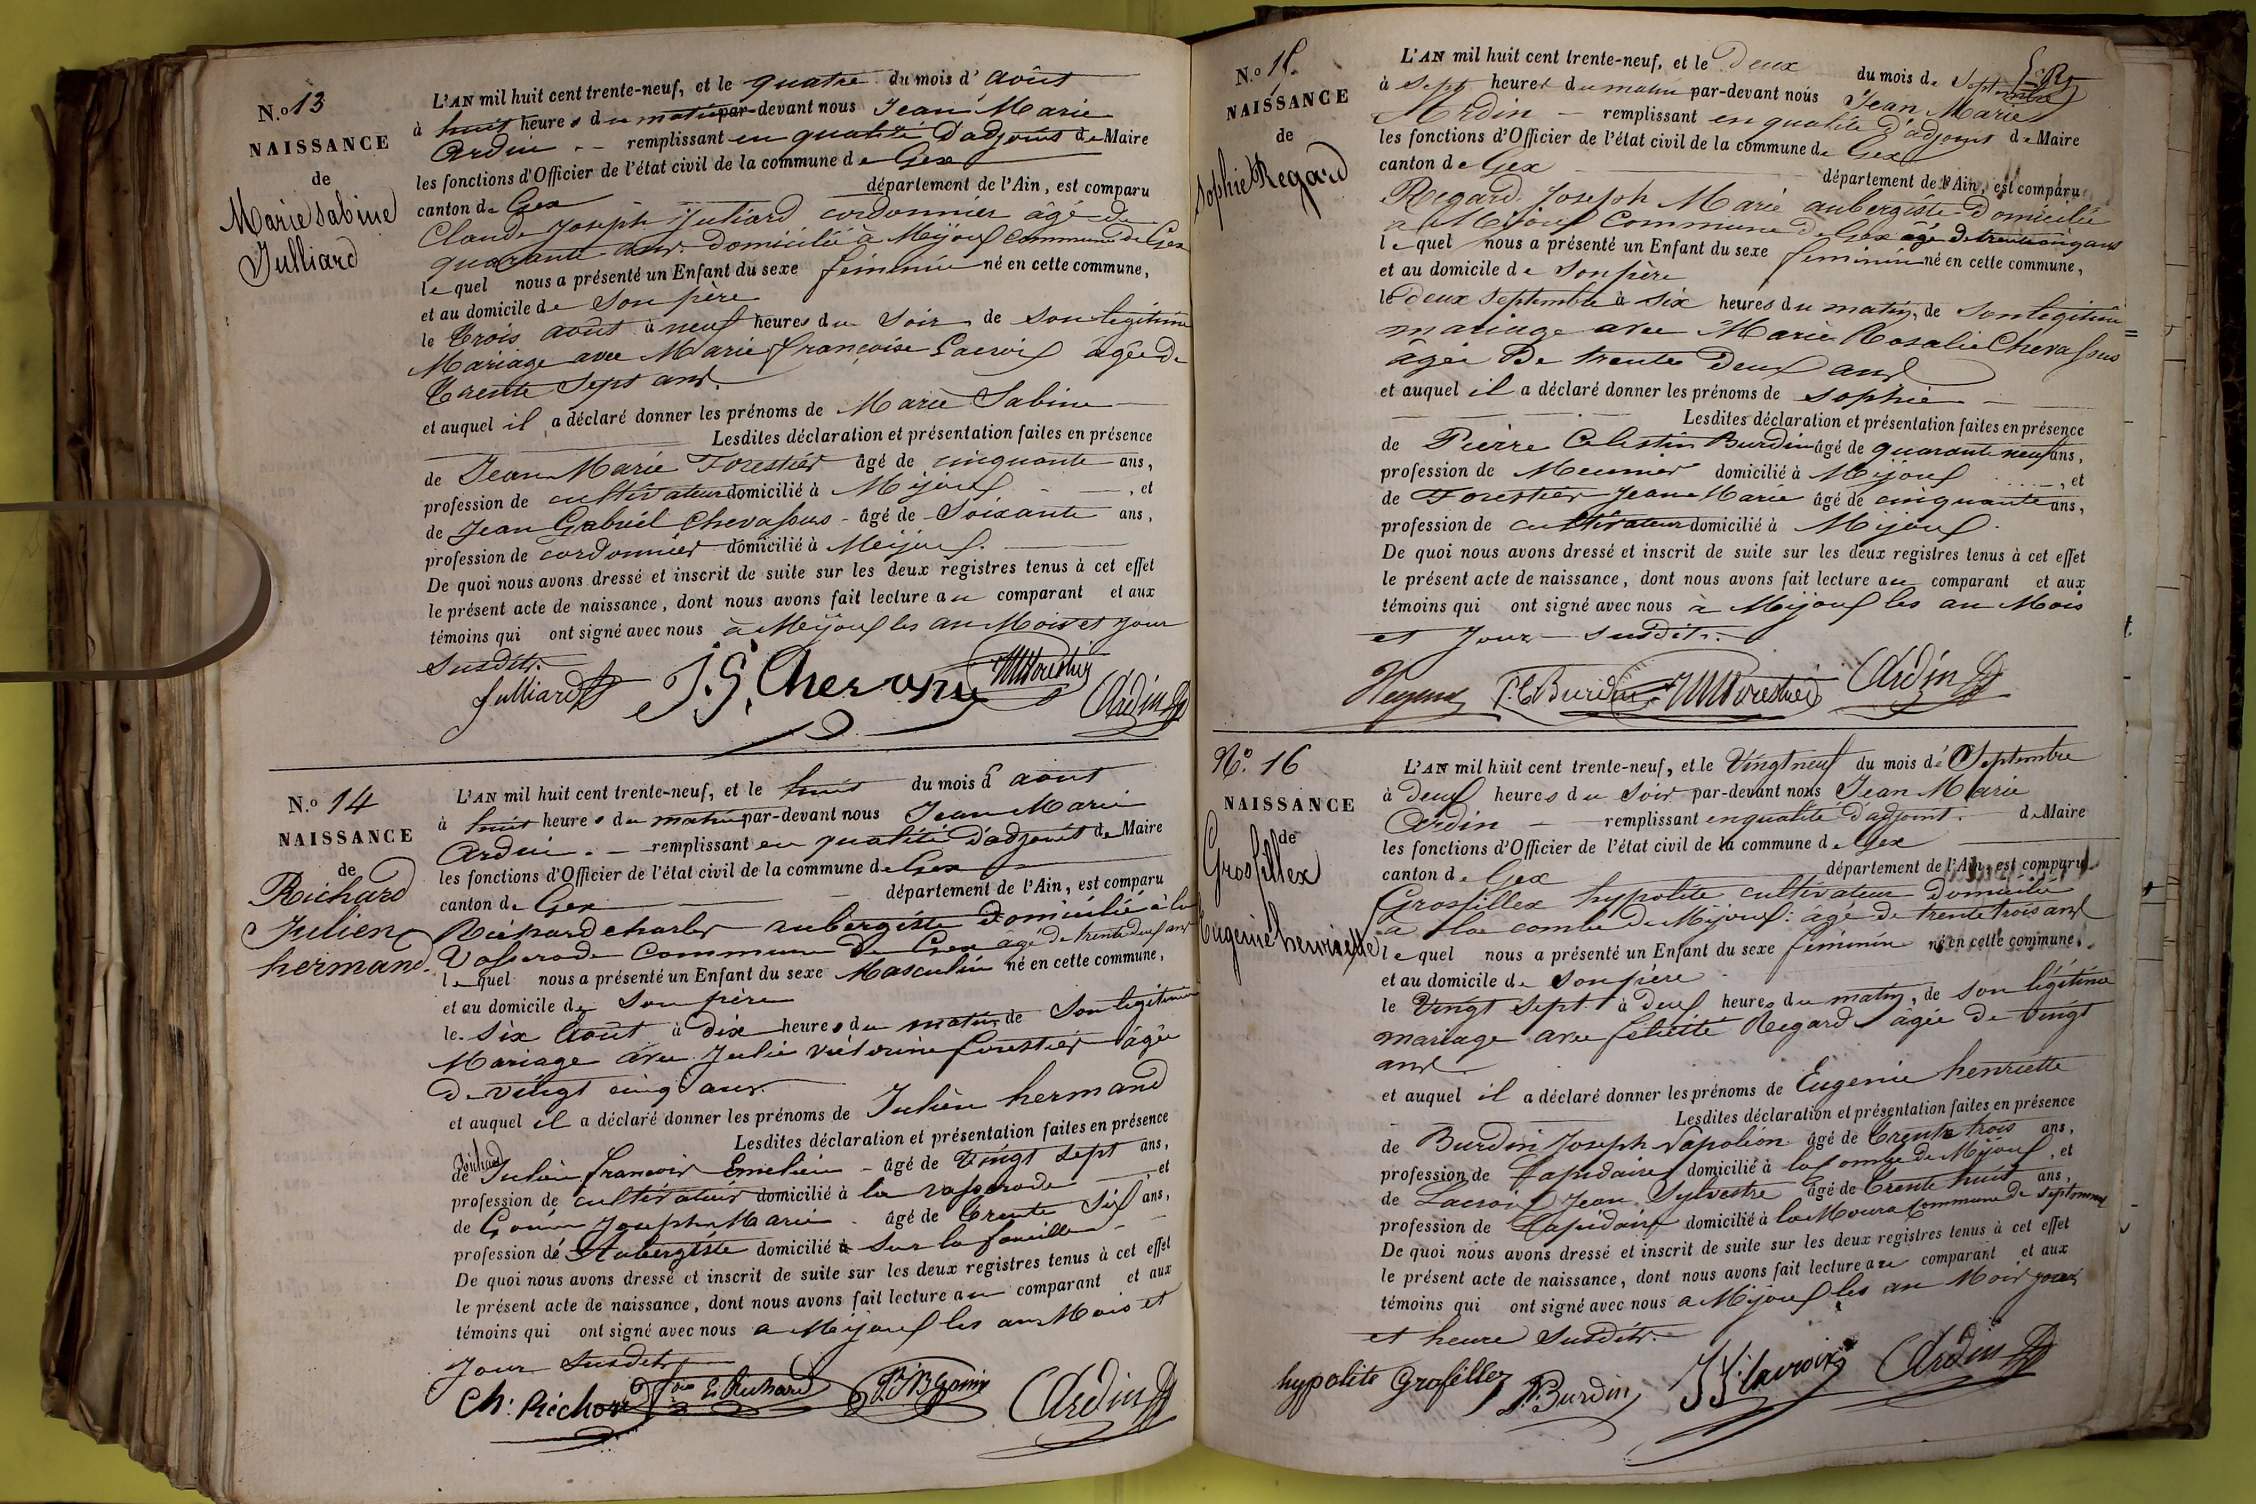 N.o 13
NAISSANCE
de
Marie Sabine
Julliard
L'AN mil huit cent trente-neuf, et le quatre du mois d' août
à huit heures du matin par-devant nous Jean Marie
Ardin remplissant en qualité d'adjoint de Maire
les fonctions d'Officier de l'état civil de la commune de Gex
canton de Gex département de l'Ain, est comparu
Claude Joseph Julliard cordonnier âgé de
quarante ans domicilié à Mijoux Commune de Gex
lequel nous a présenté un Enfant du sexe féminin né en cette commune,
et au domicile de son père
le trois août à neuf heures du soir de son légitime
Mariage avec Marie françoise Lacroix âgée de
trente sept ans.
et auquel il a déclaré donner les prénoms de Marie Sabine
Lesdites déclaration et présentation faites en présence
de Jean Marie Forestier âgé de cinquante ans,
profession de cultivateur domicilié à Mijoux, et
de Jean Gabriel Chevassus âgé de soixante ans,
profession de cordonnier domicilié à Meijoux.
De quoi nous avons dressé et inscrit de suite sur les deux registres tenus à cet effet
le présent acte de naissance, dont nous avons fait lecture au comparant et aux
témoins qui ont signé avec nous à Meijoux les an Mois et jour
susdits.
Julliard J. G. Chevassus JM Forestier Ardin
N.o 14
NAISSANCE
de
Richard
Julien
hermand.
L'AN mil huit cent trente-neuf, et le huit du mois d août
à huit heures du matin par-devant nous Jean Marie
Ardin remplissant en qualité d'adjoint de Maire
les fonctions d'Officier de l'état civil de la commune de Gex
canton de Gex département de l'Ain, est comparu
Richard charles aubergiste domicilié à la
Vasserode commune de Gex âgé de trente deux ans
lequel nous a présenté un Enfant du sexe Masculin né en cette commune,
et au domicile de son père
le six août à dix heures du matin de son légitime
Mariage avec Julie victorine forestier âgée
de vingt cinq ans.
et auquel il a déclaré donner les prénoms de Julien hermand
Lesdites déclaration et présentation faites en présence
Richard
de Julien françois Emelien âgé de vingt sept ans,
profession de cultivateur domicilié à la vasserode et
de Gonin Joseph Marie âgé de trente six ans,
profession de Aubergiste domicilié à sur la faucille
De quoi nous avons dressé et inscrit de suite sur les deux registres tenus à cet effet
le présent acte de naissance, dont nous avons fait lecture au comparant et aux
témoins qui ont signé avec nous a Mijoux les an Mois et
jour susdits
Ch: Richard Richard Gonin Ardin
N.o 15.
NAISSANCE
de
Sophie Regard
L'AN mil huit cent trente-neuf, et le deux du mois de septembre
à sept heures du matin par-devant nous Jean Marie
Ardin remplissant en qualité d'adjoint de Maire
les fonctions d'Officier de l'état civil de la commune de Gex
canton de Gex département de l'Ain, est comparu
Regard Joseph Marie aubergiste domicilié
a Mijoux Commune de Gex âgé de trente cinq ans
lequel nous a présenté un Enfant du sexe féminin né en cette commune,
et au domicile de son père
le deux septembre à six heures du matin, de son légitime
mariage avec Marie Rosalie Chevassus
âgée De trente Deux ans
et auquel il a déclaré donner les prénoms de Sophie
Lesdites déclaration et présentation faites en présence
de Pierre Celestin Burdin âgé de quarante neuf ans,
profession de Meunier domicilié à Mijoux, et
de Forestier Jean Marie âgé de cinquante ans,
profession de cultivateur domicilié à Mijoux.
De quoi nous avons dressé et inscrit de suite sur les deux registres tenus à cet effet
le présent acte de naissance, dont nous avons fait lecture au comparant et aux
témoins qui ont signé avec nous à Mijoux les an Mois
et Jour susdits.
Regard P. C. Burdin JM Forestier Ardin
No. 16
NAISSANCE
de
Grosfillex
Eugenie henriette
L'AN mil huit cent trente-neuf, et le Vingt neuf du mois de Septembre
à deux heures du soir par-devant nous Jean Marie
Ardin remplissant en qualité d'adjoint. de Maire
les fonctions d'Officier de l'état civil de la commune de Gex
canton de Gex département de l'Ain, est comparu
Grosfillex hypolite cultivateur domicilié
a la combe de Mijoux: âgé de trente trois ans
lequel nous a présenté un Enfant du sexe féminin né en cette commune,
et au domicile de son père
le Vingt sept à deux heures du matin, de son légitime
mariage avec félicité Regard âgée de vingt
ans
et auquel il a déclaré donner les prénoms de Eugenie henriette
Lesdites déclaration et présentation faites en présence
de Burdin Joseph Napoléon âgé de trente trois ans,
profession de Lapidaire domicilié à la Combe de Mijoux, et
de Lacroix Jean Sylvestre âgé de trente huit ans,
profession de Lapidaire domicilié à la Moura commune de septmoncel
De quoi nous avons dressé et inscrit de suite sur les deux registres tenus à cet effet
le présent acte de naissance, dont nous avons fait lecture au comparant et aux
témoins qui ont signé avec nous a Mijoux les an Mois jour
et heure susdits.
hypolite Grosfillex Burdin J S Lacroix Ardin